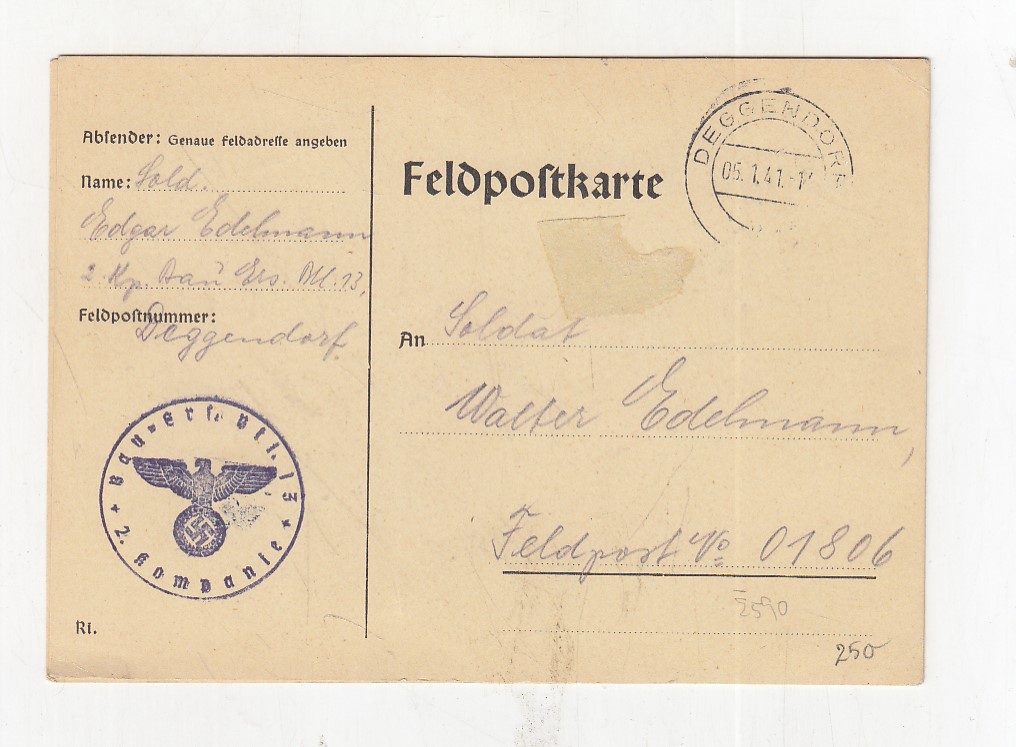 Absender: Genaue Feldadresse angeben
Name: Sold.
Edgar Edelmann
2. Kp. Bau Ers. Btl. 13,
Feldpostnummer:
Deggendorf
Bau-Ers. Btl. 13
2. Kompanie
Ri.
Feldpostkarte
DEGGENDORF
06.1.41.-1
An Soldat
Walter Edelmann,
Feldpost No 01806
2590
250